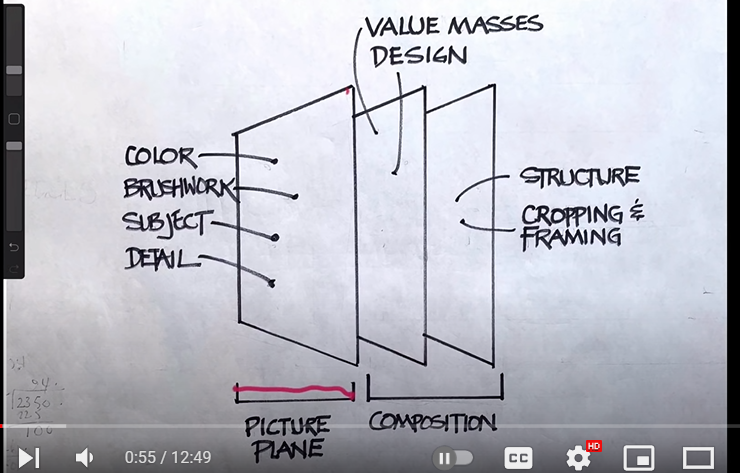 VALUE MASSES
DESIGN
COLOR
BRUSHWORK
SUBJECT
DETAIL
STRUCTURE
CROPPING &
FRAMING
PICTURE
PLANE
COMPOSITION
2350
0:55 / 12:49
CC
HD